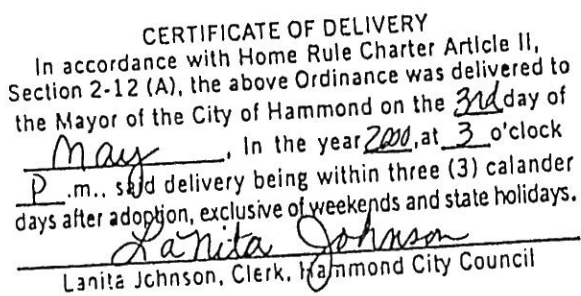 CERTIFICATE OF DELIVERY
In accordance with Home Rule Charter Article II,
Section 2-12 (A), the above Ordinance was delivered to
the Mayor of the City of Hammond on the 3rd day of
May, In the year 2000, at 3 o'clock
P.m., said delivery being within three (3) calander
days after adoption, exclusive of weekends and state holidays.
LaNita Johnson
Lanita Johnson, Clerk, Hammond City Council